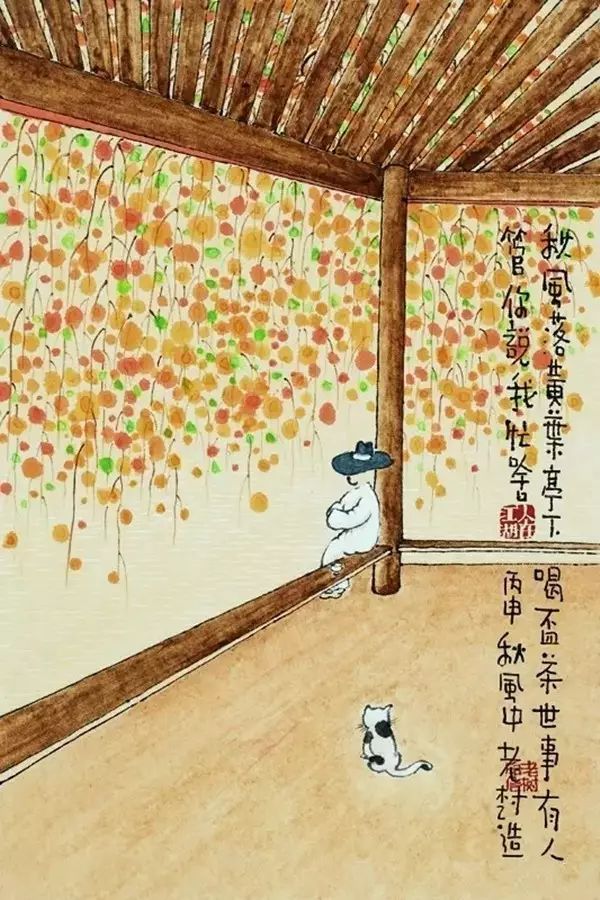 秋風落黄葉亭下喝盃茶世事有人
管你説我忙啥
人在江湖
丙申秋風中老树造
老树